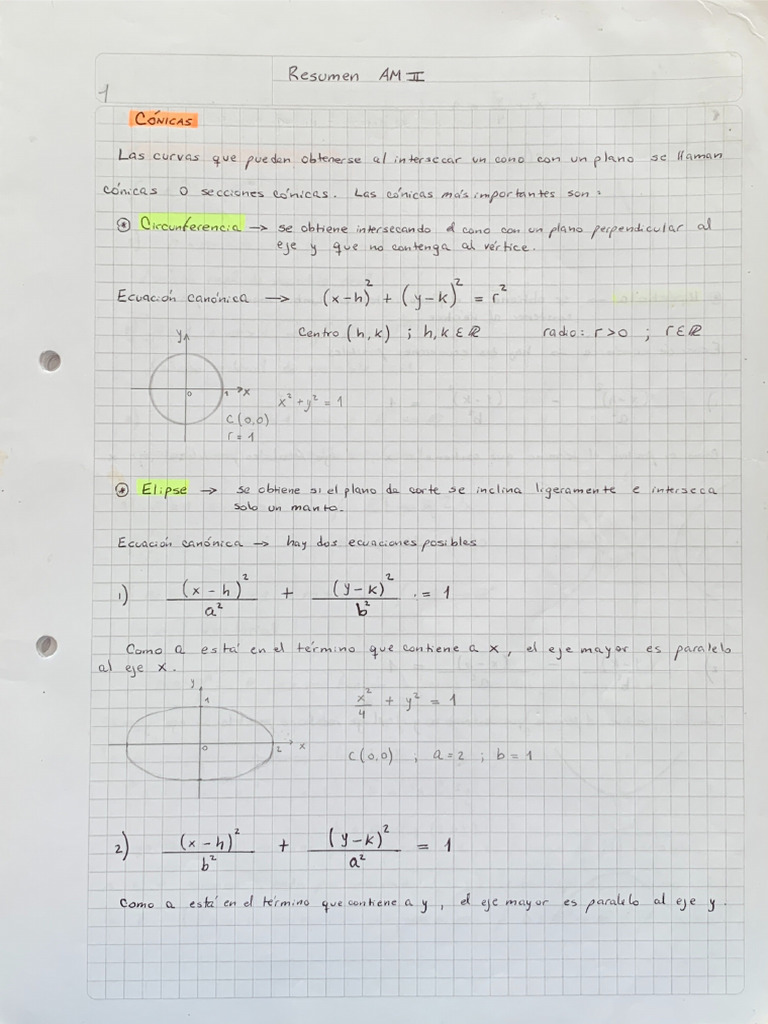 Resumen AM II
1
CÓNICAS
Las curvas que pueden obtenerse al intersecar un cono con un plano se llaman
cónicas o secciones cónicas. Las cónicas más importantes son:
⊛ Circunferencia → se obtiene intersecando el cono con un plano perpendicular al
eje y que no contenga al vértice.
Ecuación canónica → (x-h)² + (y-k)² = r²
Centro (h,k) ; h,k ∈ ℝ radio: r>0 ; r∈ℝ
y
0 1 x x² + y² = 1
C(0,0)
r = 1
⊛ Elipse → se obtiene si el plano de corte se inclina ligeramente e interseca
solo un manto.
Ecuación canónica → hay dos ecuaciones posibles
1) (x-h)²/a² + (y-k)²/b² = 1
Como a está en el término que contiene a x, el eje mayor es paralelo
al eje x.
y
1 x²/4 + y² = 1
0 2 x
C(0,0) ; a=2 ; b=1
2) (x-h)²/b² + (y-k)²/a² = 1
Como a está en el término que contiene a y, el eje mayor es paralelo al eje y.